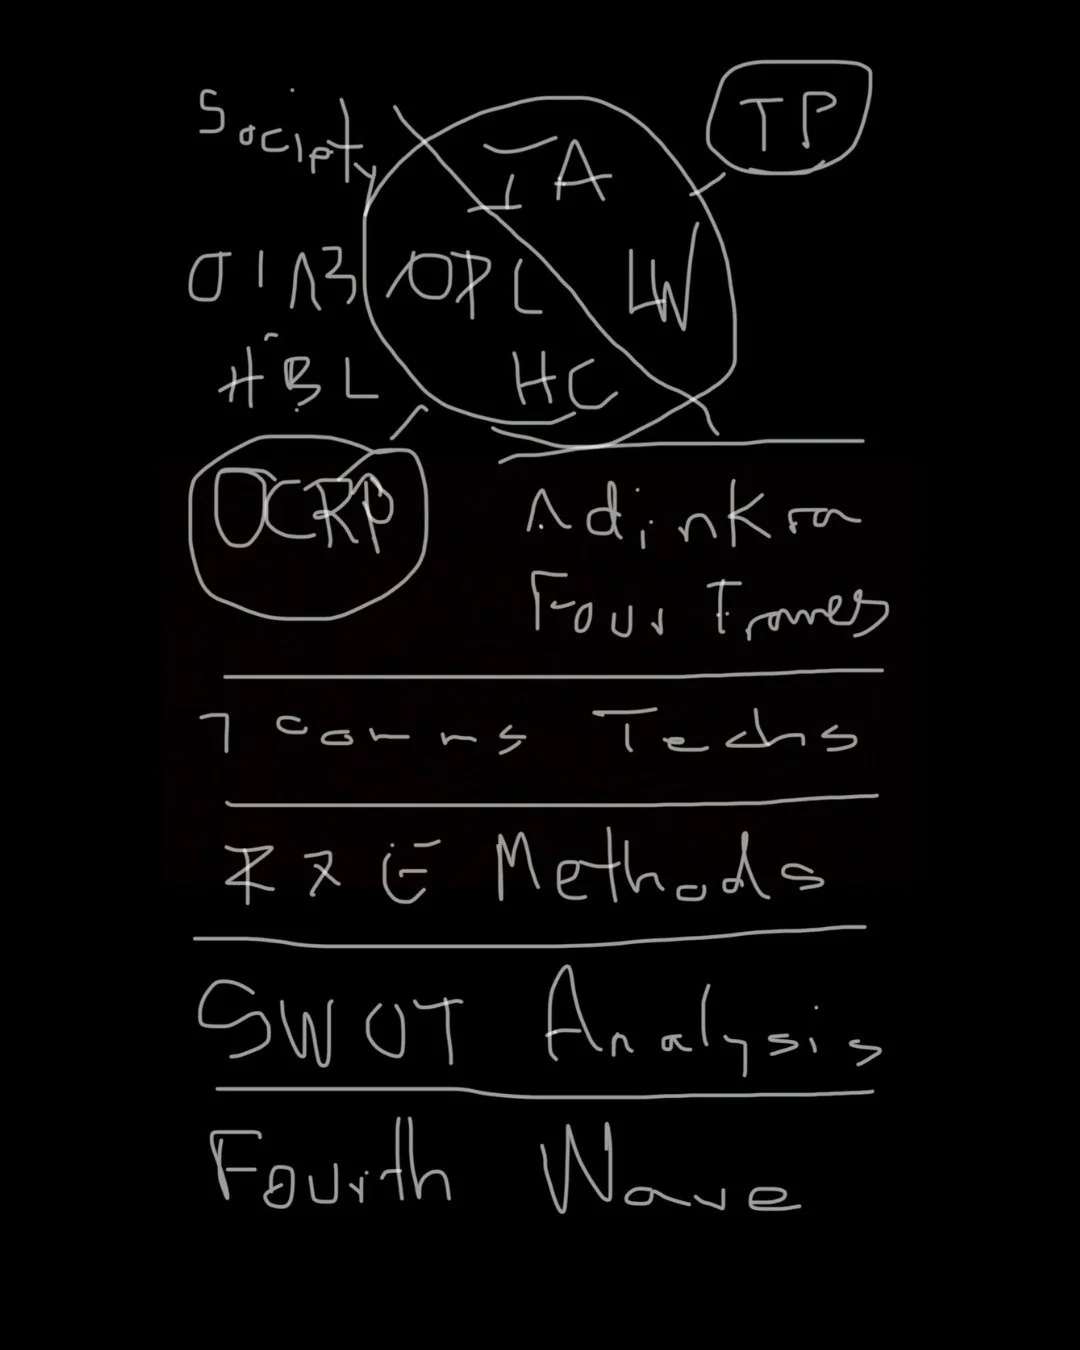 Society
IA
TP
OPL
LW
HBL
HC
OCRP
Adinkra
Four Frames
7 Comms Techs
Methods
SWOT Analysis
Fourth Wave